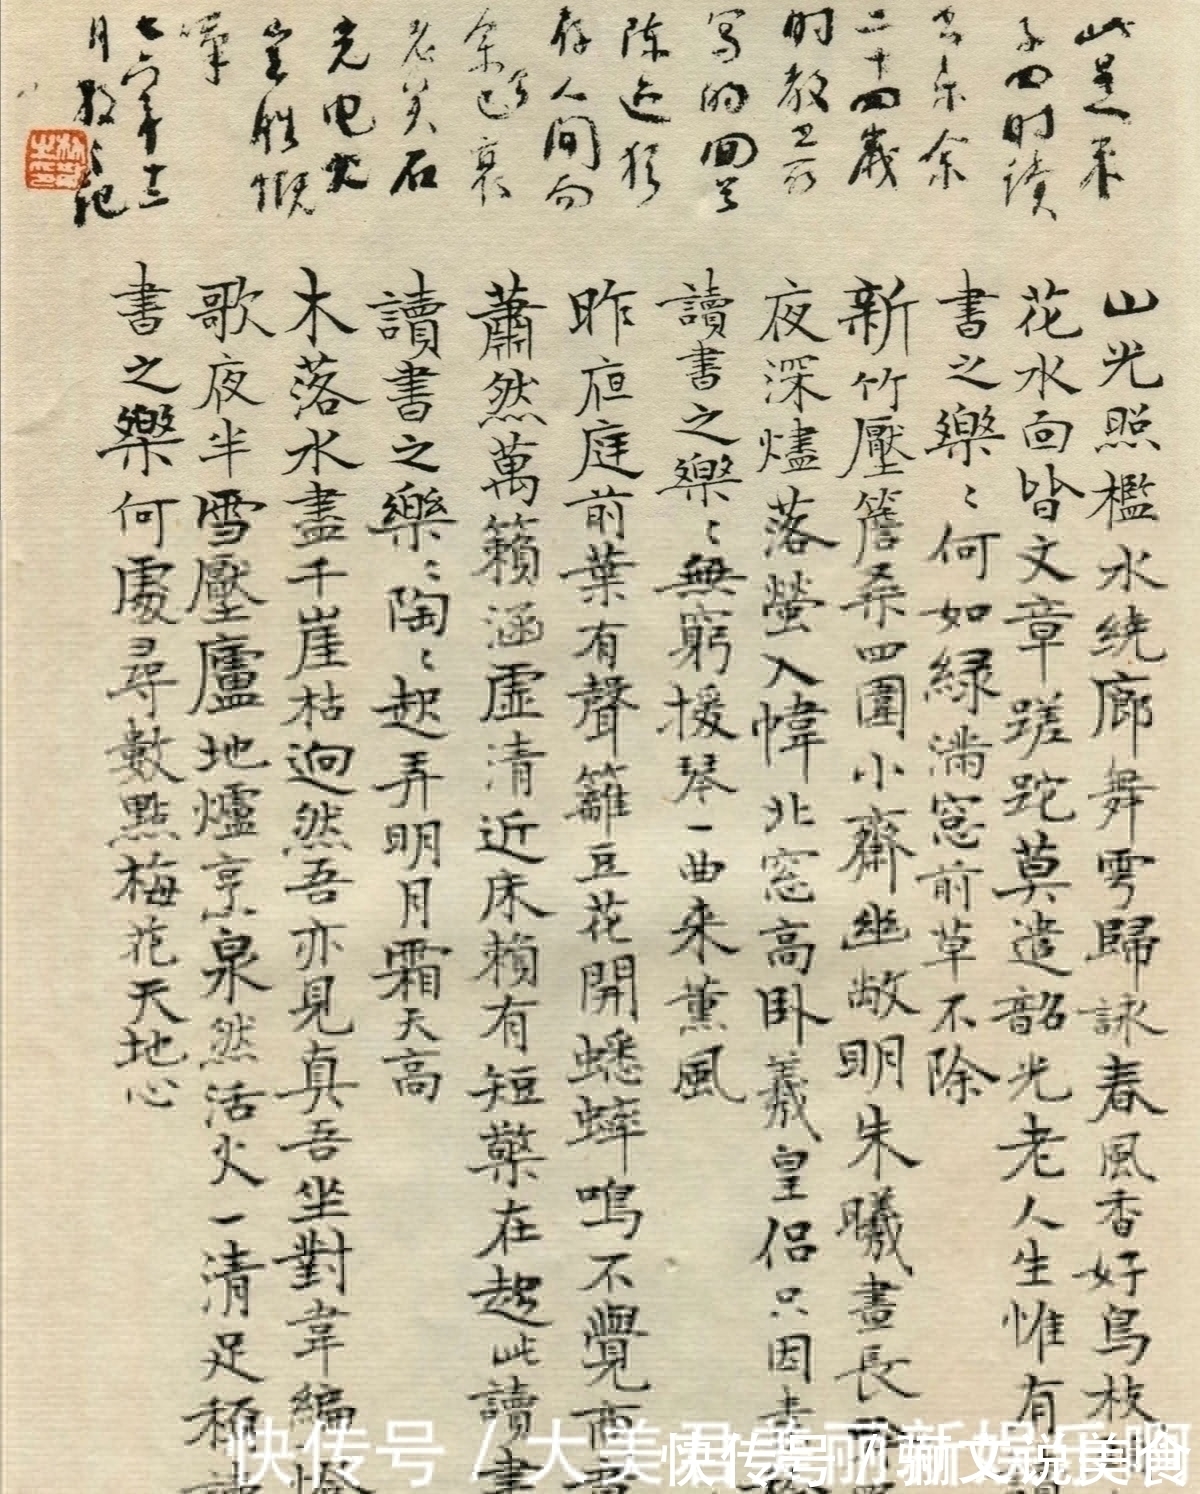 此是朱
子四时读
书乐余
二十四岁
时教
写的回首
陈迹犹
存人间而
余已衰
老矣石
火光电
岂胜慨
七六年十二
月 记
山光照檻水绕廊舞雩歸詠春風香好鳥枝
花水面皆文章蹉跎莫遣韶光老人生惟有
書之樂〻何如緑滿窓前草不除
新竹壓簷桑四圍小齋幽敞明朱曦晝長
夜深燼落螢入幃北窓高卧羲皇侣只因素
讀書之樂〻無窮援琴一曲来薰風
昨夜庭前葉有聲籬豆花開蟋蟀鳴不覺商
蕭然萬籟涵虚清近床賴有短檠在趁此讀書
讀書之樂〻陶〻起弄明月霜天高
木落水盡千崖枯迥然吾亦見真吾坐對韋編
歌夜半雪壓廬地爐烹泉然活火一清足稱讀
書之樂何處尋數點梅花天地心
快传号 / 大美
快传号 / 骊文说美食